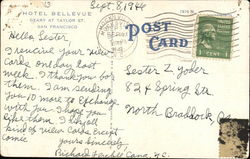 Sept. 8, 1944
HOTEL BELLEVUE
GEARY AT TAYLOR ST.
SAN FRANCISCO
POST
CARD
Hello Lester.
I received your view
cards one day last
week. I thank you for
them. I am sending
you 10 more to exchange
with you. I hope you
like them. I collect
kind of view cards except
comic.
Yours Sincerely,
Richard
Lester Z. Yoder
82 4 Spring St.
North Braddock, Pa.